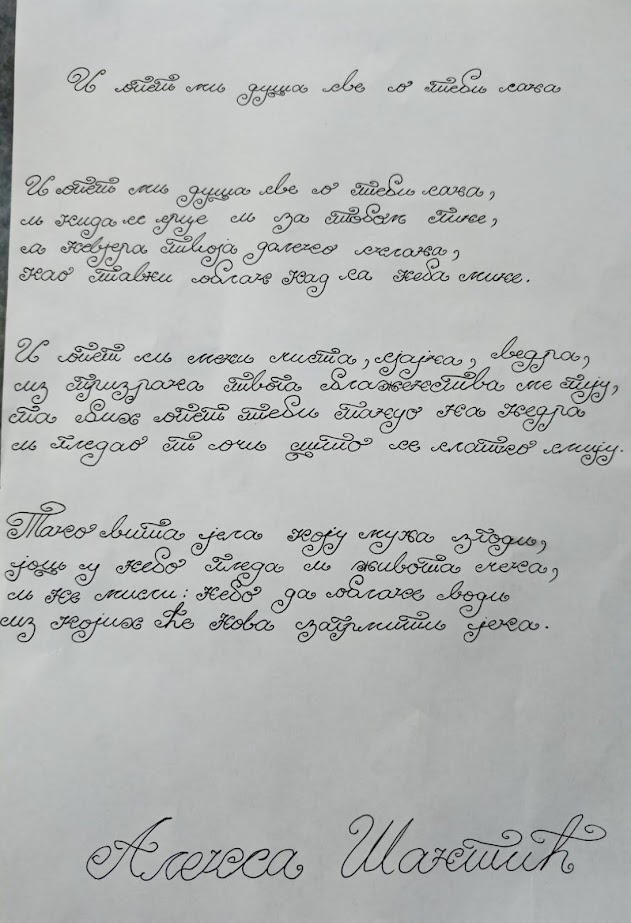 И опет ми душа све о теби сања
И опет ми душа све о теби сања,
и кида се срце и за тобом гине,
са невјера твоја далеко склања,
као тавни облак кад са неба мине.
И опет си мени чиста, сјајна, ведра,
из призрака твога блаженства ме грију,
па бих опет теби пануо на њедра
и гледао ти очи што се слатко смију.
Тако вита јела коју муња згоди,
још у небо гледа и живота чека,
и не мисли: небо да облаке води
из којих ће нова загрмити јека.
Алекса Шантић